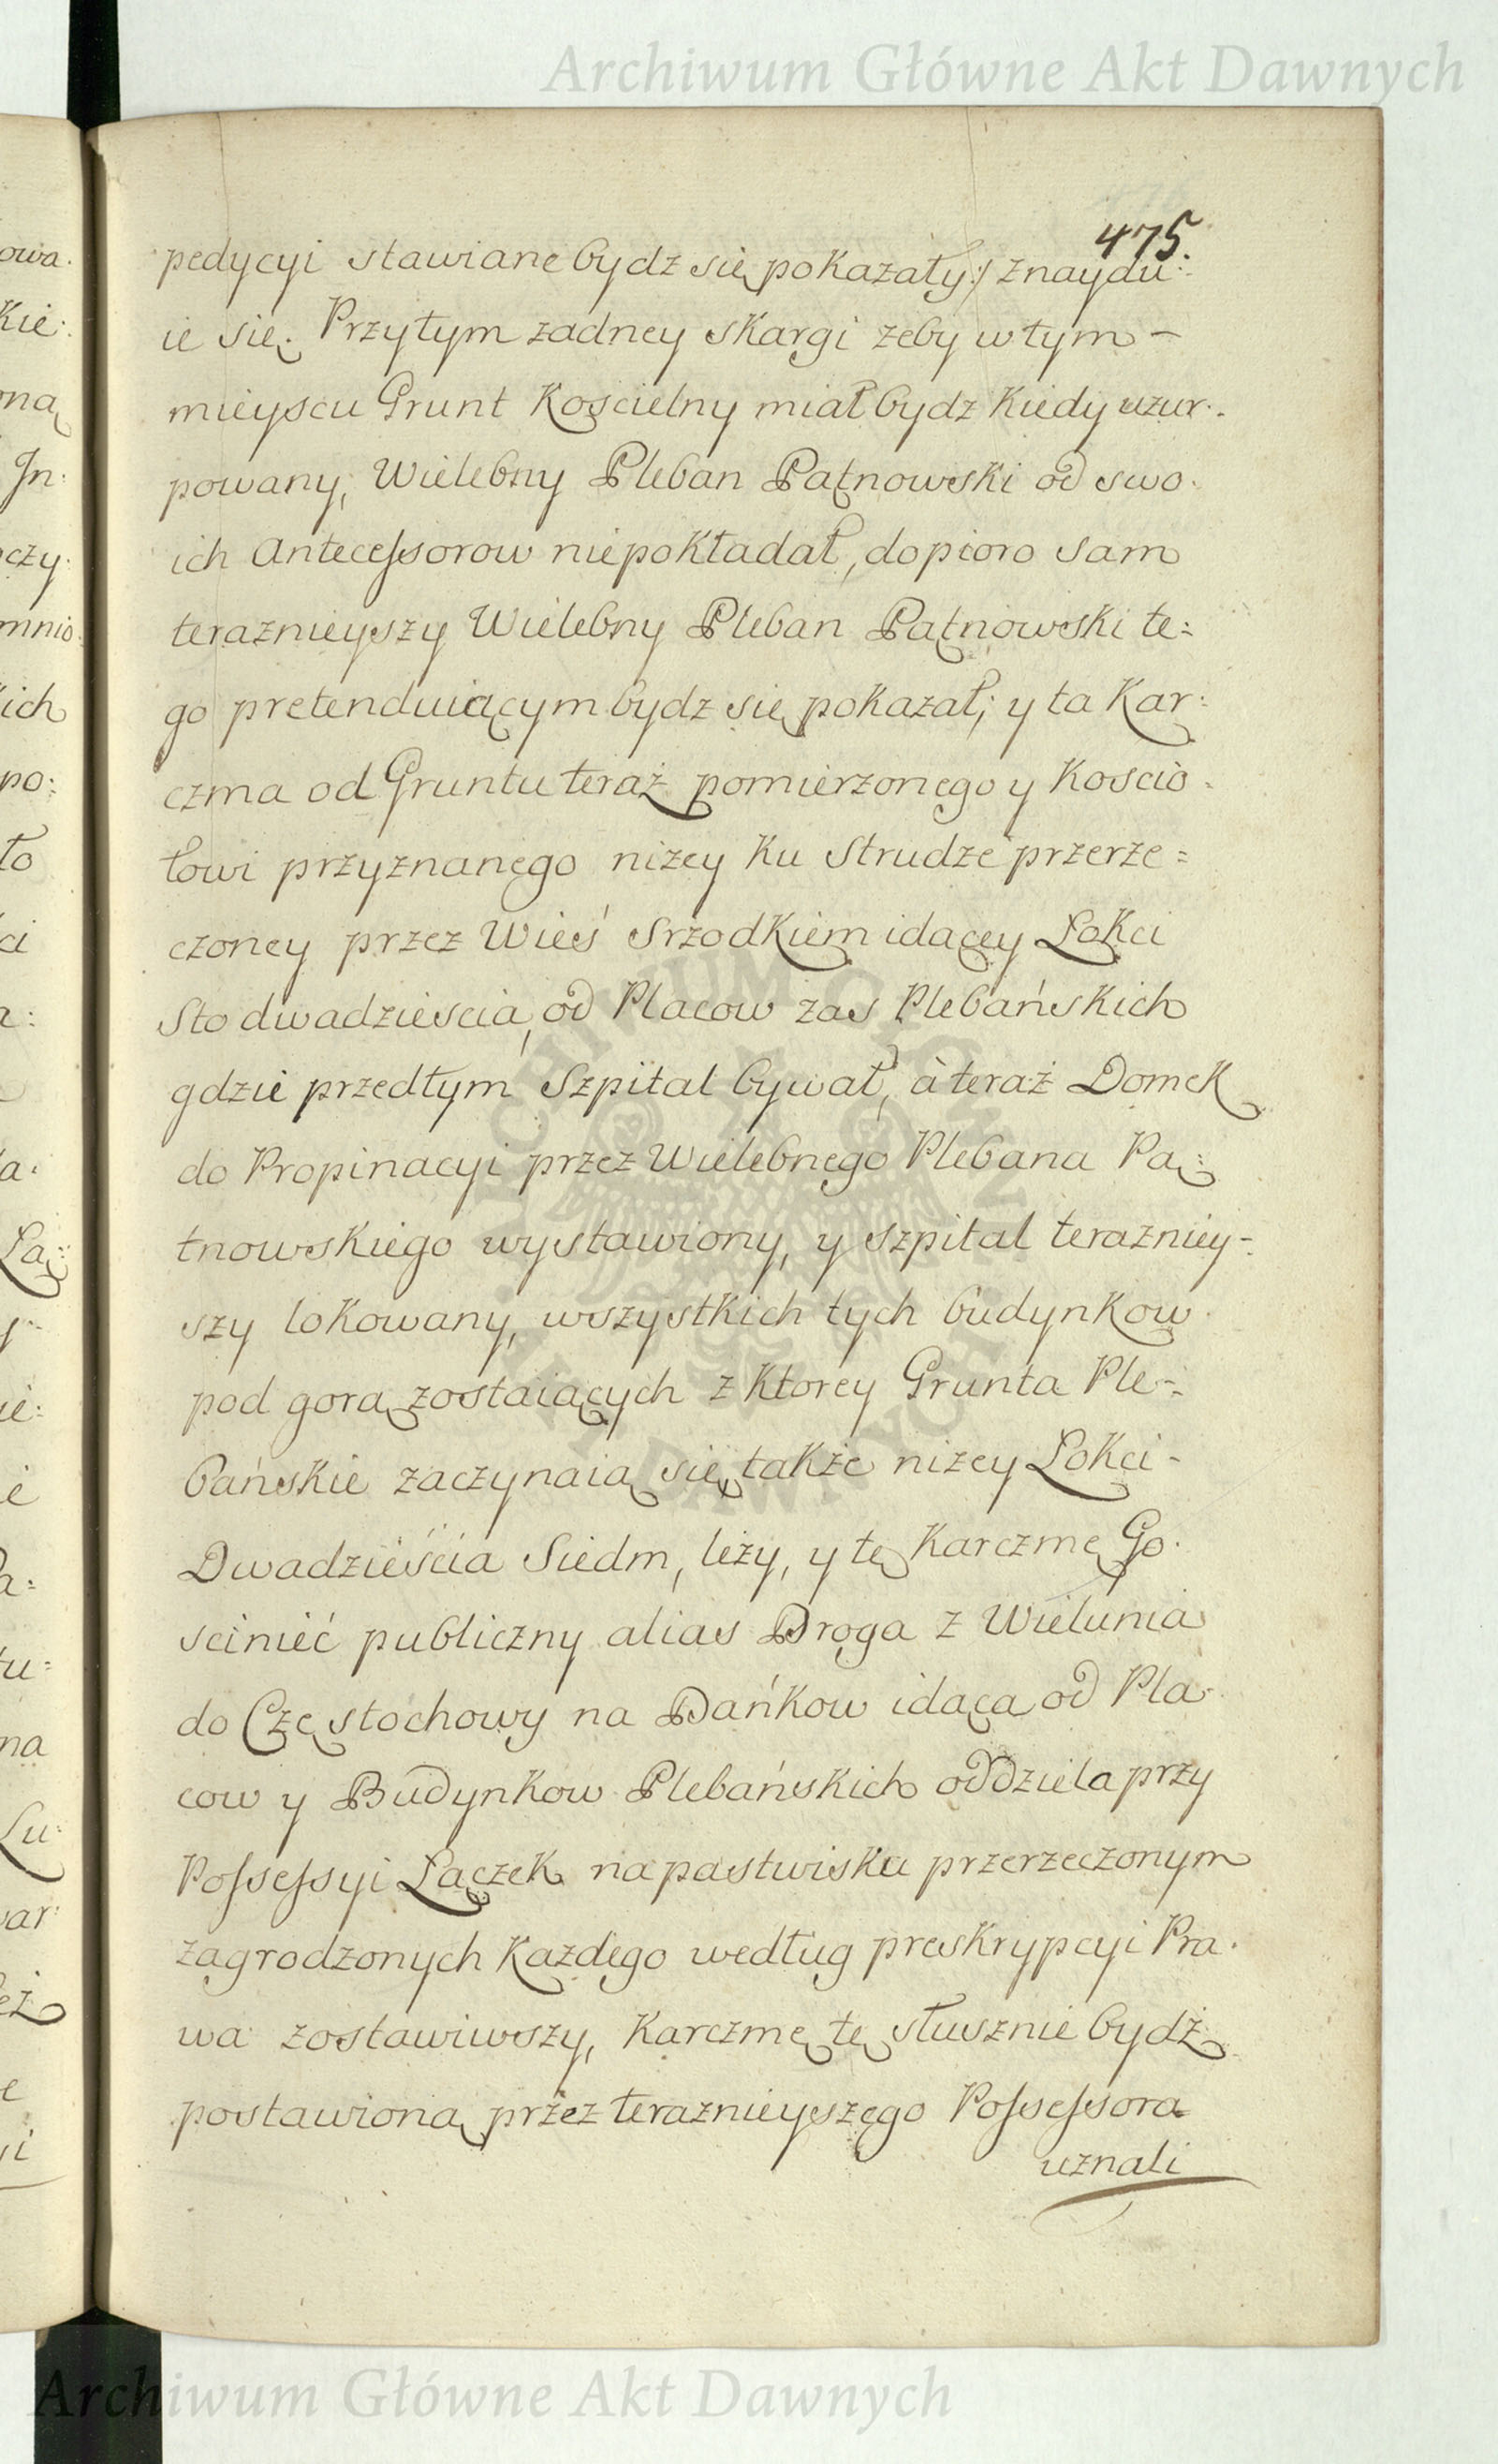 Archiwum Główne Akt Dawnych
475.
pedycyi stawiane bydz się pokazały:/ znaydu:
ie się. Przytym zadney skargi zeby w tym –
mieyscu Grunt Koscielny miał bydz kiedy uzur:
powany, Wielebny Pleban Pątnowski od swo:
ich Antecessorow niepokładał, dopioro sam
teraznieyszy Wielebny Pleban Pątnowski te:
go pretenduiącym bydz się pokazał; y ta Kar:
czma od Gruntu teraż pomierzonego y Koscio:
łowi przyznanego nizey ku Strudze przerze=
czoney przez Wieś Srzodkiem idącey Łokci
Sto dwadziescia, od Placow zas Plebańskich
gdzie przedtym Szpital bywał, à teraż Domek
do Propinacyi przez Wielebnego Plebana Pą:
tnowskiego wystawiony, y szpital terazniey=
szy lokowany, wszystkich tych budynkow
pod gorą zostaiących z ktorey Grunta Ple=
bańskie zaczynaią się, także nizey Łokci –
Dwadzieścia Siedm, leży, y tę Karczmę Go:
sciniéc publiczny alias Droga z Wielunia
do Częstochowy na Dańkow idąca od Pla:
cow y Budynkow Plebańskich oddziela przy
Possessyi Łączek na pastwisku przerzeczonym
zagrodzonych Kazdego według preskrypcyi Pra:
wa zostawiwszy, Karczmę tę słusznie bydż
postawioną przez teraznieyszego Possessora
uznali
owa.
Kie:
ną
Jn:
czy:
mnio:
ich
po:
ło
ci
a:
a:
Łą:
y
ie:
ie
a:
tu=
na
Lu:
war:
eż
e
yi
Archiwum Główne Akt Dawnych